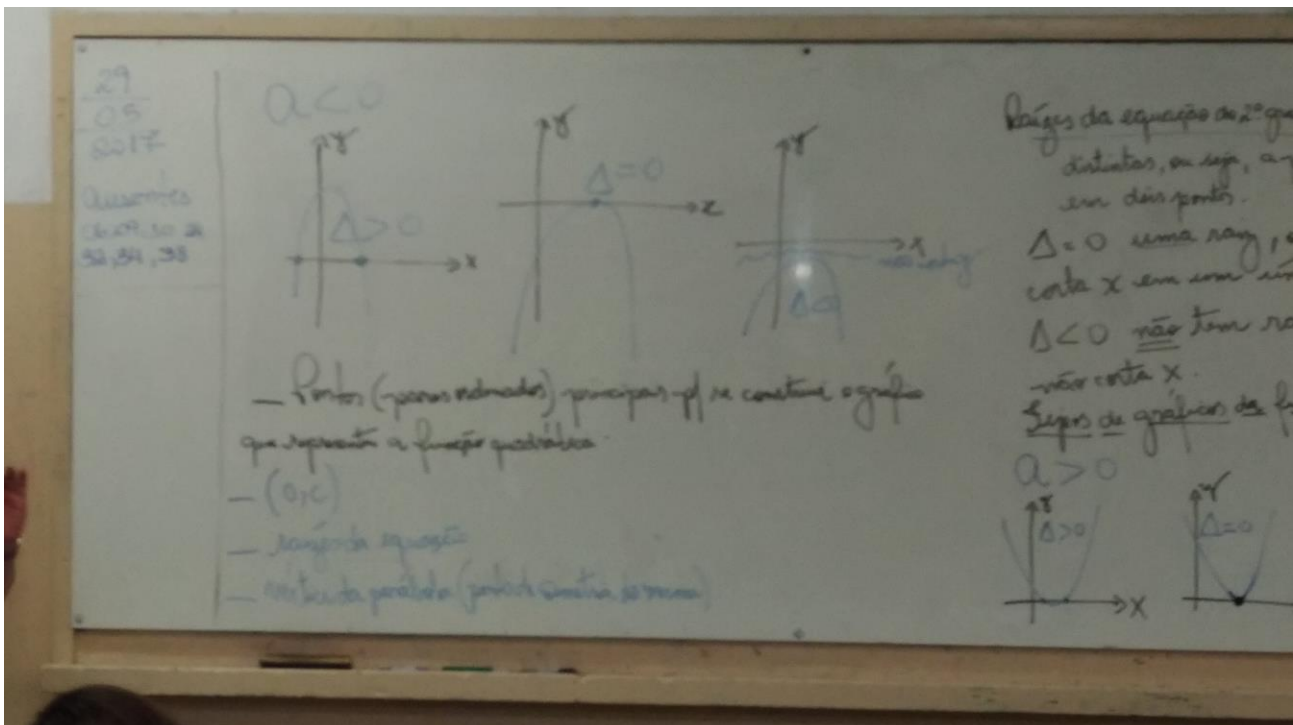 29
05
2017
Ausentes
32, 34, 38
a < 0
y
Δ > 0
x
y
Δ = 0
x
y
x
não raiz
Δ <
— Pontos (pares ordenados) principais p/ se construir o gráfico
que representa a função quadrática.
— (0, c)
— raízes da equação
— vértice da parábola (ponto de simetria da mesma)
Raízes da equação do 2º
distintas, ou seja, a
em dois pontos.
Δ = 0 uma raiz,
corta x em um
Δ < 0 não tem
não corta x.
de gráficos da
a > 0
y
Δ > 0
x
y
Δ = 0